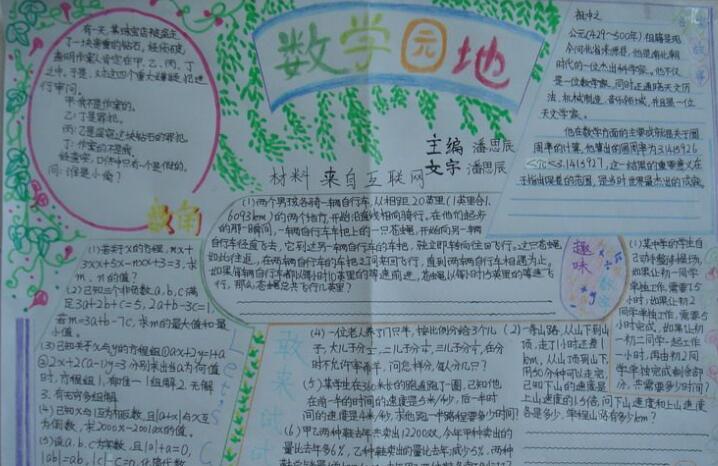 数学园地
主编 潘思辰
文字 潘思辰
材料 来自互联网
有一天,某珠宝店被盗走
了一块贵重的钻石。经侦破,
查明作案人肯定在甲、乙、丙、丁
之中。于是,对这四个重大嫌疑犯进
行审问。
甲:我不是作案的。
乙:丁是罪犯。
丙:乙是盗窃这块钻石的罪犯
丁:作案的不是我
经查实,口供中只有一个是假的。
问:谁是小偷?
祖冲之
公元(429~500年)祖籍是现
今河北省涞源县,他是南北朝
时代的一位杰出科学家。他不仅
是一位数学家,同时还通晓天文历
法、机械制造、音乐领域,并且是一位
天文学家。
他在数学方面的主要成就是关于圆
周率的计算,他算出的圆周率为3.1415926
<π<3.1415927,这一结果的重要意义在
于指出误差的范围,是当时世界最杰出的成就。
(1)两个男孩各骑一辆自行车,从相距20英里(1英里合1.
6093km)的两个地方,开始沿直线相向骑行。在他们起步
的那一瞬间,一辆自行车车把上的一只苍蝇,开始向另一辆
自行车径直飞去。它到达另一辆自行车的车把,就立即转向往回飞行。这只苍蝇
如此往返,在两辆自行车的车把之间来回飞行,直到两辆自行车相遇为止。
如果每辆自行车都以每小时10英里的等速前进,苍蝇以每小时15英里的等速飞
行,那么,苍蝇总共飞行几英里?
趣味
(1)若关于x的方程,mx+
3xx+5x-nxx+3=3,求
m、n的值?
(2)已知三个非负数a,b,c满
足3a+2b+c=5,2a+b-3c=1,
若m=3a+b-7c,求m的最大值和最
小值。
(3)已知关于x与y的方程组①ax+2y=1+a
②2x+2(a-1)y=3分别求出当a为何值
时,方程组1,有唯一1组解2.无解
3.有无穷多组解
(4)已知x与1互为倒数,且|a+x|与x互
为倒数,求2000x-2001ax的值。
(5)设a,b,c为实数,且|a|+a=0,
|ab|=ab,|c|-c=0,化简代数
敢来试试
(4)一位老人养了17只羊,按比例分给3个儿
子,大儿子分½,二儿子分⅓,三儿子分⅑,在分
时不允许宰杀羊,问怎样分,每人分几只?
(5)某学生在360米长的跑道跑了一圈,已知他,
在前一半的时间的速度是5米/秒,后一半时
间的速度是4米/秒,求他跑一半路程要多少时间?
(6)甲乙两种鞋去年共卖出12200双,今年甲种卖出的
量比去年多6%,乙种鞋卖出的量比去年减少5%,两种
(2)一青山路,从山下到山
顶,走了1小时还差1
km,从山顶到山下,
用50分钟可以走完,
已知下山的速度是
上山速度的1.5倍,问下山速度和上山速度
各是多少,学程山路有多少km?
(1)某中学的学生自
己动手整修操场,
如果让初一同学
单独工作,需要7.5
小时;如果让初2
同学单独工作,需要
5小时完成。如果让初
一初二同学一起工作
一小时,再由初2同
学单独完成剩余部
分,共需要多少时间?